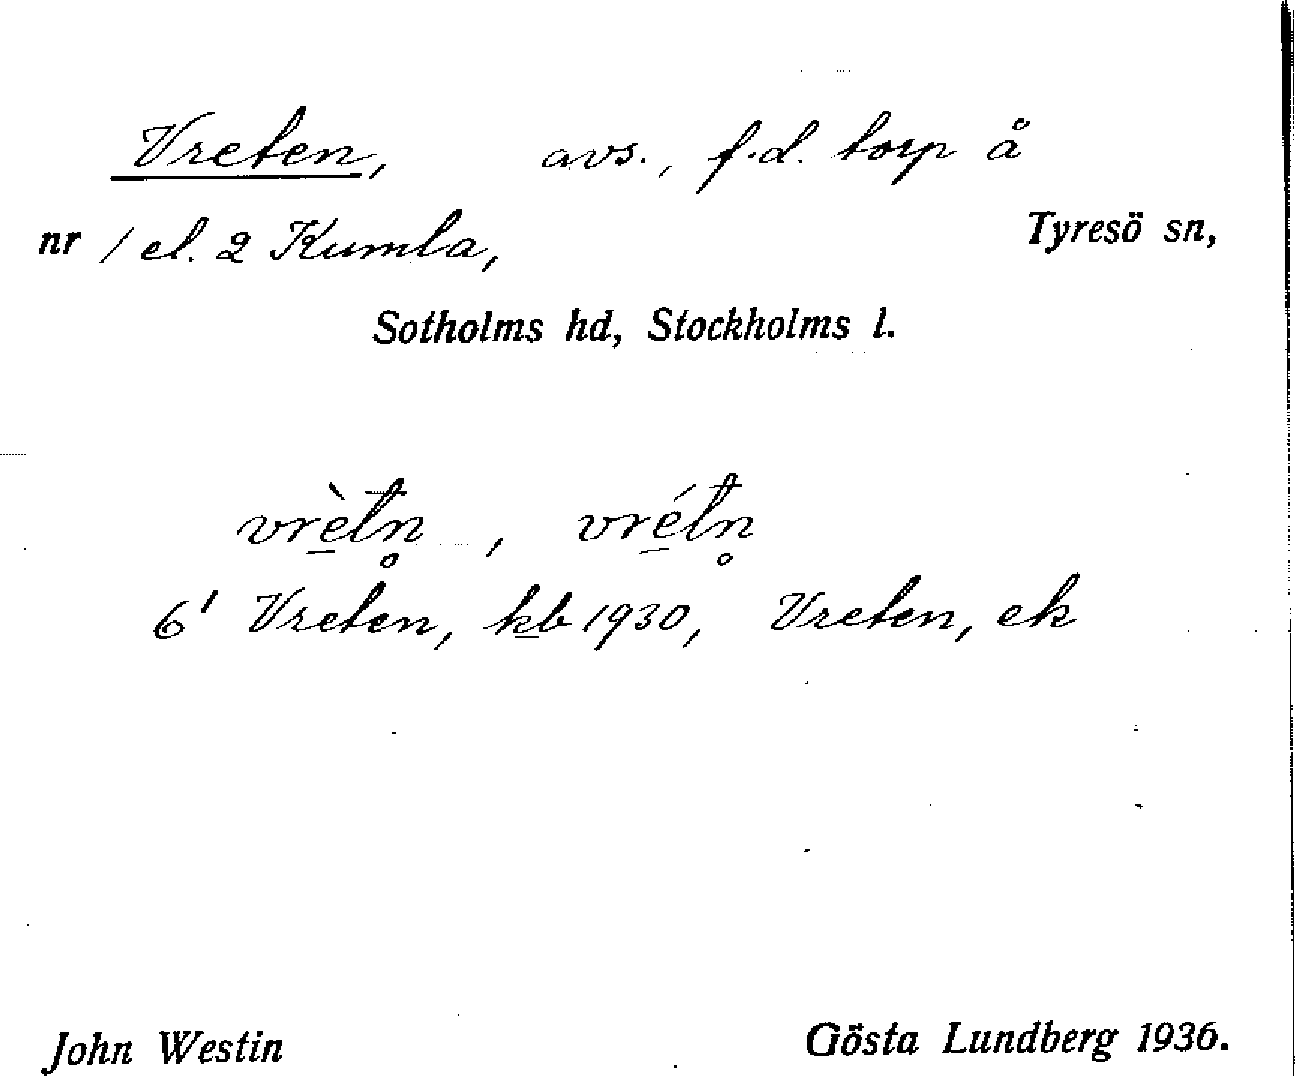 Vreten, avs., f.d. torp å
nr 1 el. 2 Kumla, Tyresö sn,
Sotholms hd, Stockholms l.
vrè̱tn̥, vré̱tn̥
6' Vreten, kb 1930, Vreten, ek
John Westin Gösta Lundberg 1936.